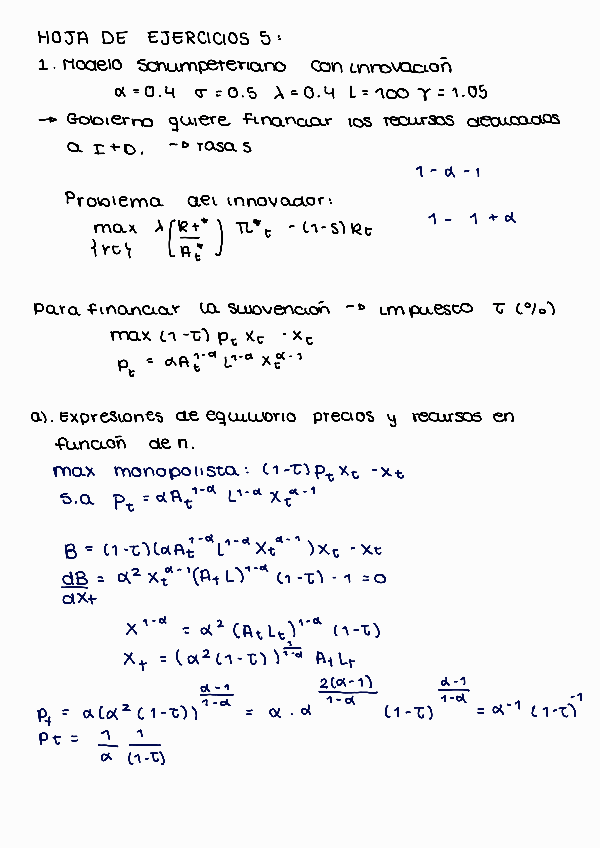 HOJA DE EJERCICIOS 5:
1. Modelo Schumpeteriano con innovación
α = 0.4 σ = 0.5 λ = 0.4 L = 100 γ = 1.05
→ Gobierno quiere financiar los recursos dedicados
a I+D. → tasa s
1 - α - 1
Problema del innovador:
1 - 1 + α
max λ (Rt*/At*)^σ π*t - (1-s) Rt
{rt}
Para financiar la subvención → impuesto τ (%)
max (1-τ) pt xt - xt
pt = αAt^1-α L^1-α xt^α-1
a). Expresiones de equilibrio precios y recursos en
función de n.
max monopolista: (1-τ) pt xt - xt
s.a pt = αAt^1-α L^1-α xt^α-1
B = (1-τ)(αAt^1-α L^1-α xt^α-1) xt - xt
dB/dxt = α² xt^α-1 (At L)^1-α (1-τ) - 1 = 0
x^1-α = α² (At Lt)^1-α (1-τ)
xt = (α² (1-τ))^1/1-α At Lt
Pt = α(α² (1-τ))^α-1/1-α = α · α^2(α-1)/1-α (1-τ)^α-1/1-α = α^-1 (1-τ)^-1
Pt = 1/α 1/(1-τ)